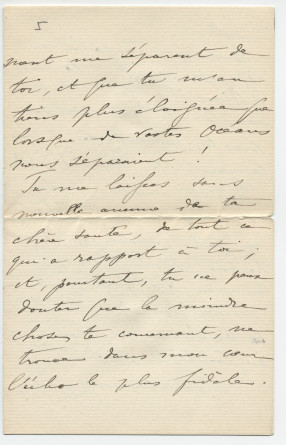 5
nant me séparent de
toi, et que tu m'en
tiens plus éloignée que
lorsque de vastes Océans
nous séparaient !
Tu me laisses sans
nouvelle aucune de ta
chère santé, de tout ce
qui a rapport à toi ;
et, pourtant, tu ne peux
douter que la moindre
chose, te concernant, ne
trouve dans mon cœur
l'écho le plus fidèle.